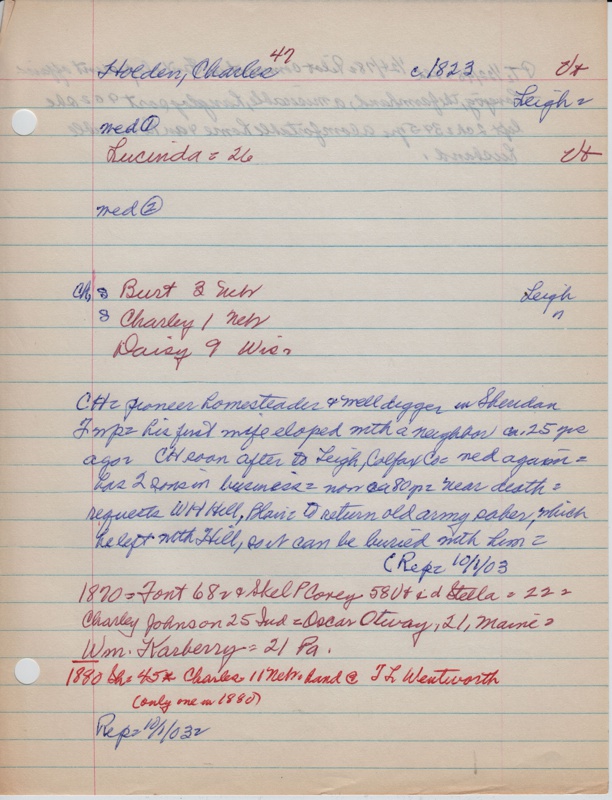 47
Holden, Charles c 1823 Vt
Leigh =
med ①
Lucinda = 26 Vt
med ②
Ch, s Burt 3 Neb Leigh
s Charley 1 Neb "
Daisy 9 Wis =
CH = pioneer homesteader & well digger in Sheridan
Twp = his first wife eloped with a neighbor ca. 25 yrs
ago = CH soon after to Leigh, Colfax Co = med again =
has 2 sons in business = now ca 80 yr = near death =
requests WH Hill, Plain = to return old army saber, which
he left with Hill, so it can be buried with him =
C Rep = 10/1/03
1870 = Font 68 = & Shel P Corey 58 Vt & d Stella = 22 =
Charley Johnson 25 Ind = Oscar Otway, 21, Maine =
Wm. Karberry = 21 Pa.
1880 Sh = 45 * Charles 11 Neb = hand @ T L Wentworth
(only one in 1880)
Rep = 10/1/03 =